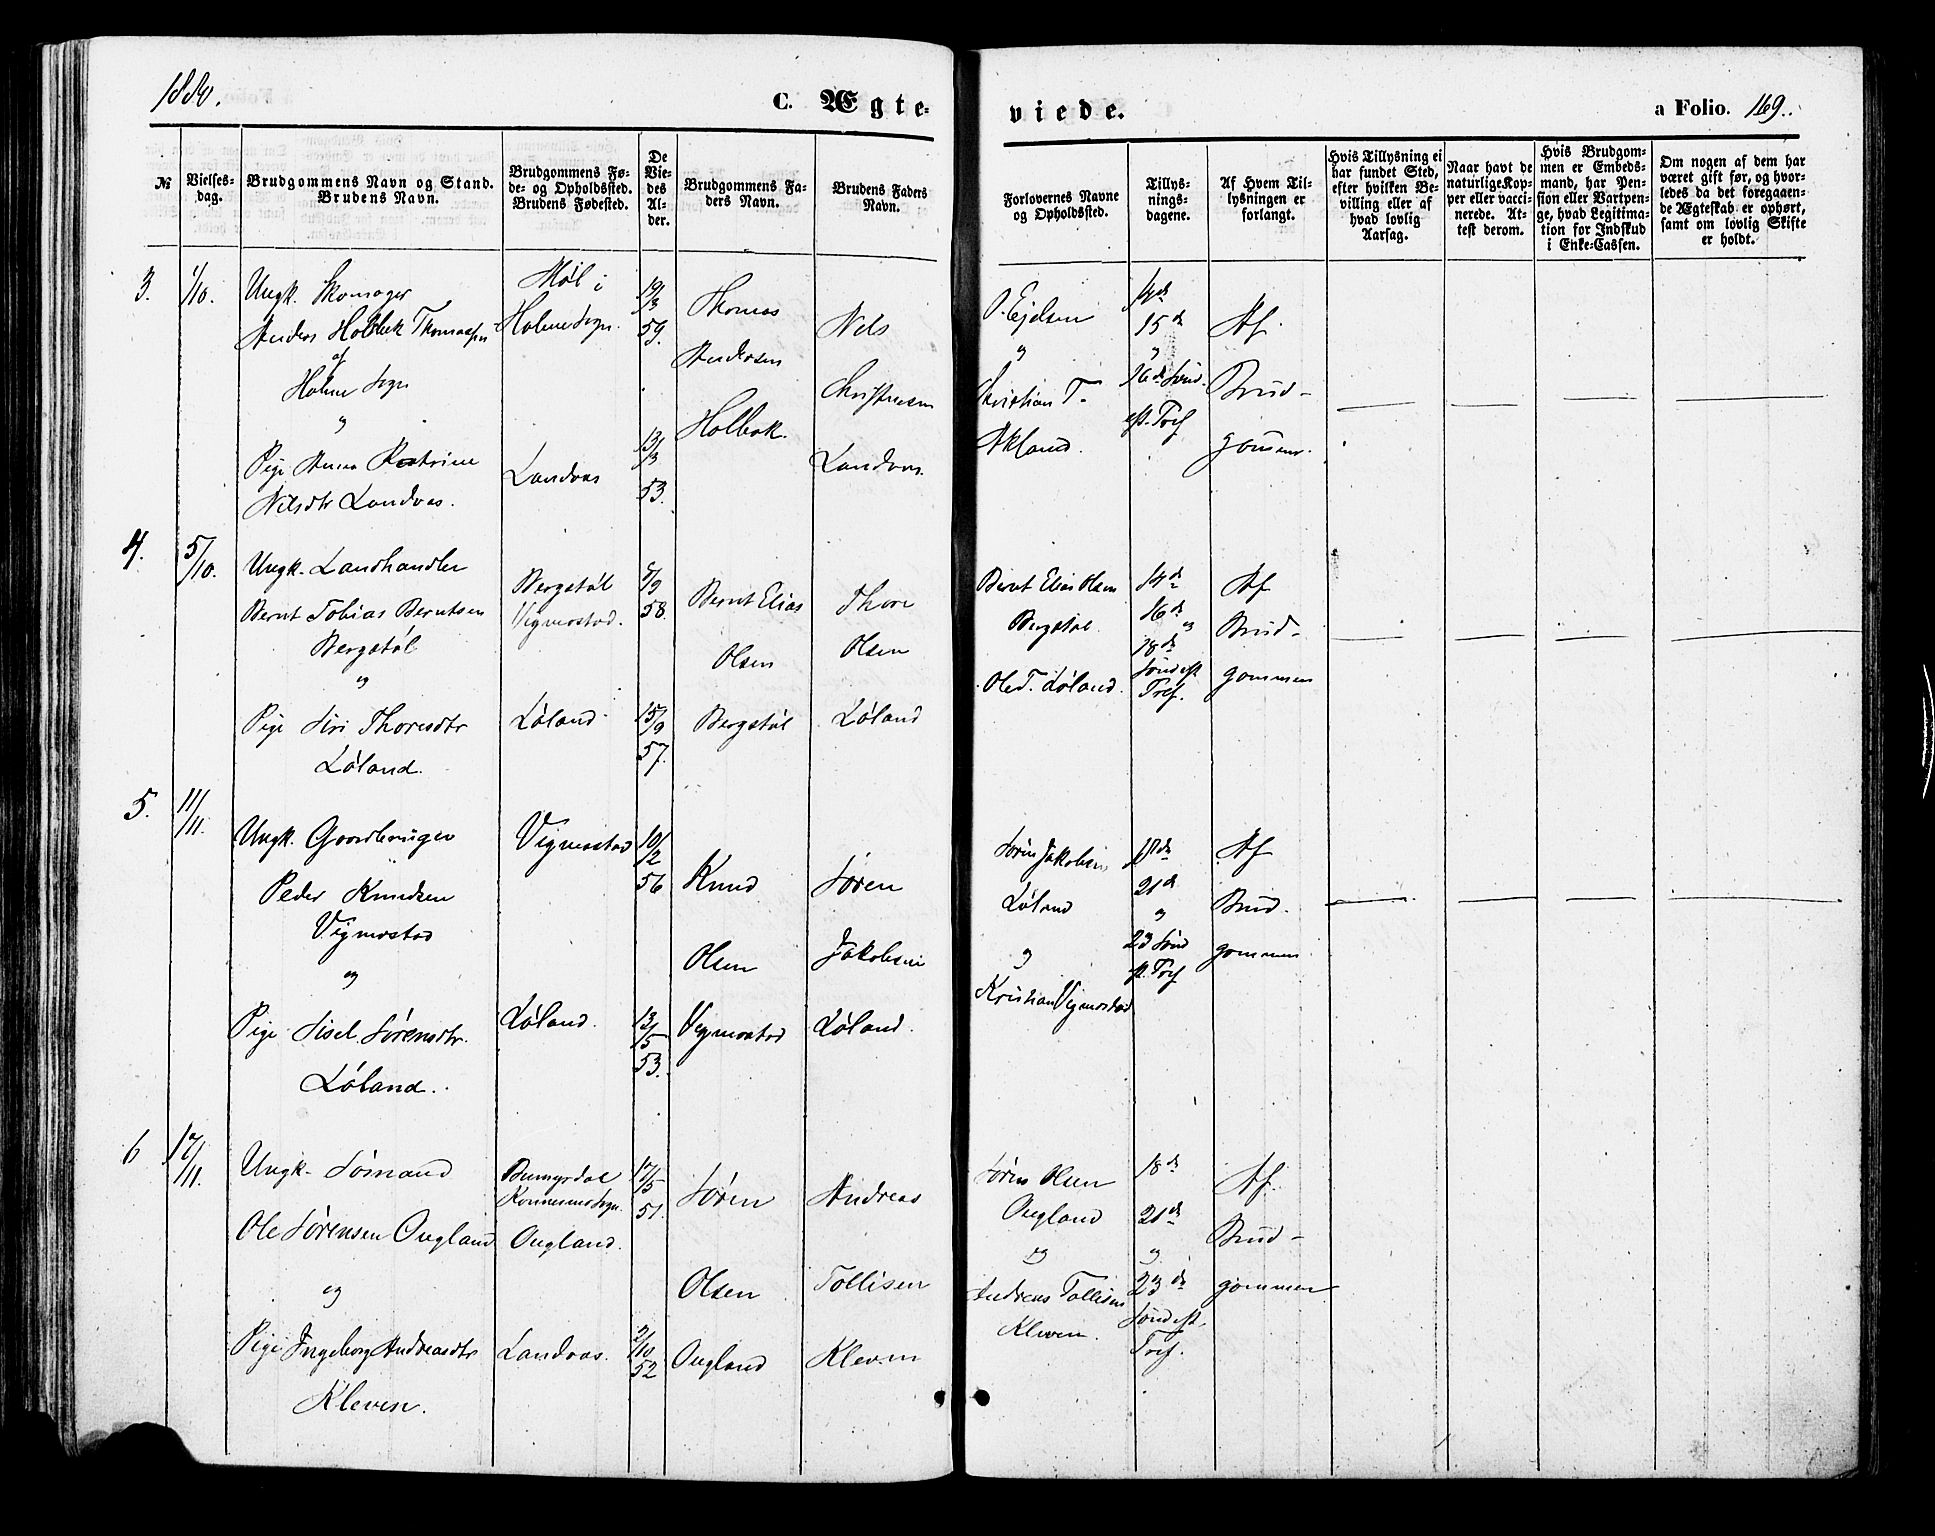 1880.
C. Ægte-
viede.
a Folio. 169.
№
Vielses-
dag.
Brudgommens Navn og Stand.
Brudens Navn.
Brudgommens Fø-
de- og Opholdssted.
Brudens Fødested.
De
Vie-
des
Al-
der.
Brudgommens Fa-
ders Navn.
Brudens Faders
Navn.
Forlovernes Navne
og Opholdssted.
Tillys-
nings-
dagene.
Af Hvem Til-
lysningen er
forlangt.
Hvis Tillysning ei
har fundet Sted,
efter hvilken Be-
villing eller af
hvad lovlig
Aarsag.
Naar havt de
naturlige Kop-
per eller vacci-
nerede. At-
test derom.
Hvis Brudgom-
men er Embeds-
mand, har Pen-
sion eller Vartpen-
ge, hvad Legitima-
tion for Indskud
i Enke-Cassen.
Om nogen af dem har
været gift før, og hvor-
ledes da det foregaaen-
de Ægteskab er ophørt,
samt om lovlig Skifte
er holdt.
3.
1/10.
Ungk. Skomager
Anders Holbek Thomassen
af
Holme Sogn
og
Pige Anna Katrine
Nilsdtr Landaas.
Møl i
Holme Sogn.
Landaas
19/3
59.
13/3
53.
Thomas
Andersen
Holbek.
Nels
Christensen
Landaas.
O. Ejelsen
og
Christian T.
Akland.
14de
15de
og
16de Sønd.
eft. Tref
Af
Brud-
gommen.
4.
5/10.
Ungk. Landhandler
Bernt Tobias Berntsen
Bergstøl
og
Pige Siri Thoresdtr
Løland.
Bergstøl
Vigmostad.
Løland
/9
58.
15/9
57.
Bernt Elias
Olsen
Bergstøl
Thore
Olsen
Løland
Bernt Elias Olsen
Bergstøl.
Ole T. Løland.
14de
16de og
18de
Sønd eft
Tref.
Af
Brud-
gommen
5.
11/11.
Ungk. Gaardbruger
Peder Knudsen
Vigmostad
og
Pige Sisel Sørensdtr.
Løland.
Vigmostad
Løland.
10/2
56
13/5
53.
Knud
Olsen
Vigmostad
Søren
Jakobsen
Løland.
Søren Jakobsen
Løland
og
Kristian Vigmostad
21de
og
23 Sønd
eft. Tref
Af
Brud-
gommen
6
17/11.
Ungk. Sømand
Ole Sørensen Ougland
og
Pige Ingeborg Andreasdtr
Kleven.
Konnesmo Sogn.
Ougland.
Landaas.
17/5
51.
2/10
52
Søren
Olsen
Ougland
Andreas
Tollisen
Kleven
Søren Olsen
Ougland
og
Andreas Tollisen
Kleven.
18de
21de
og
23de
Sønd eft.
Tref.
Af
Brud-
gommen